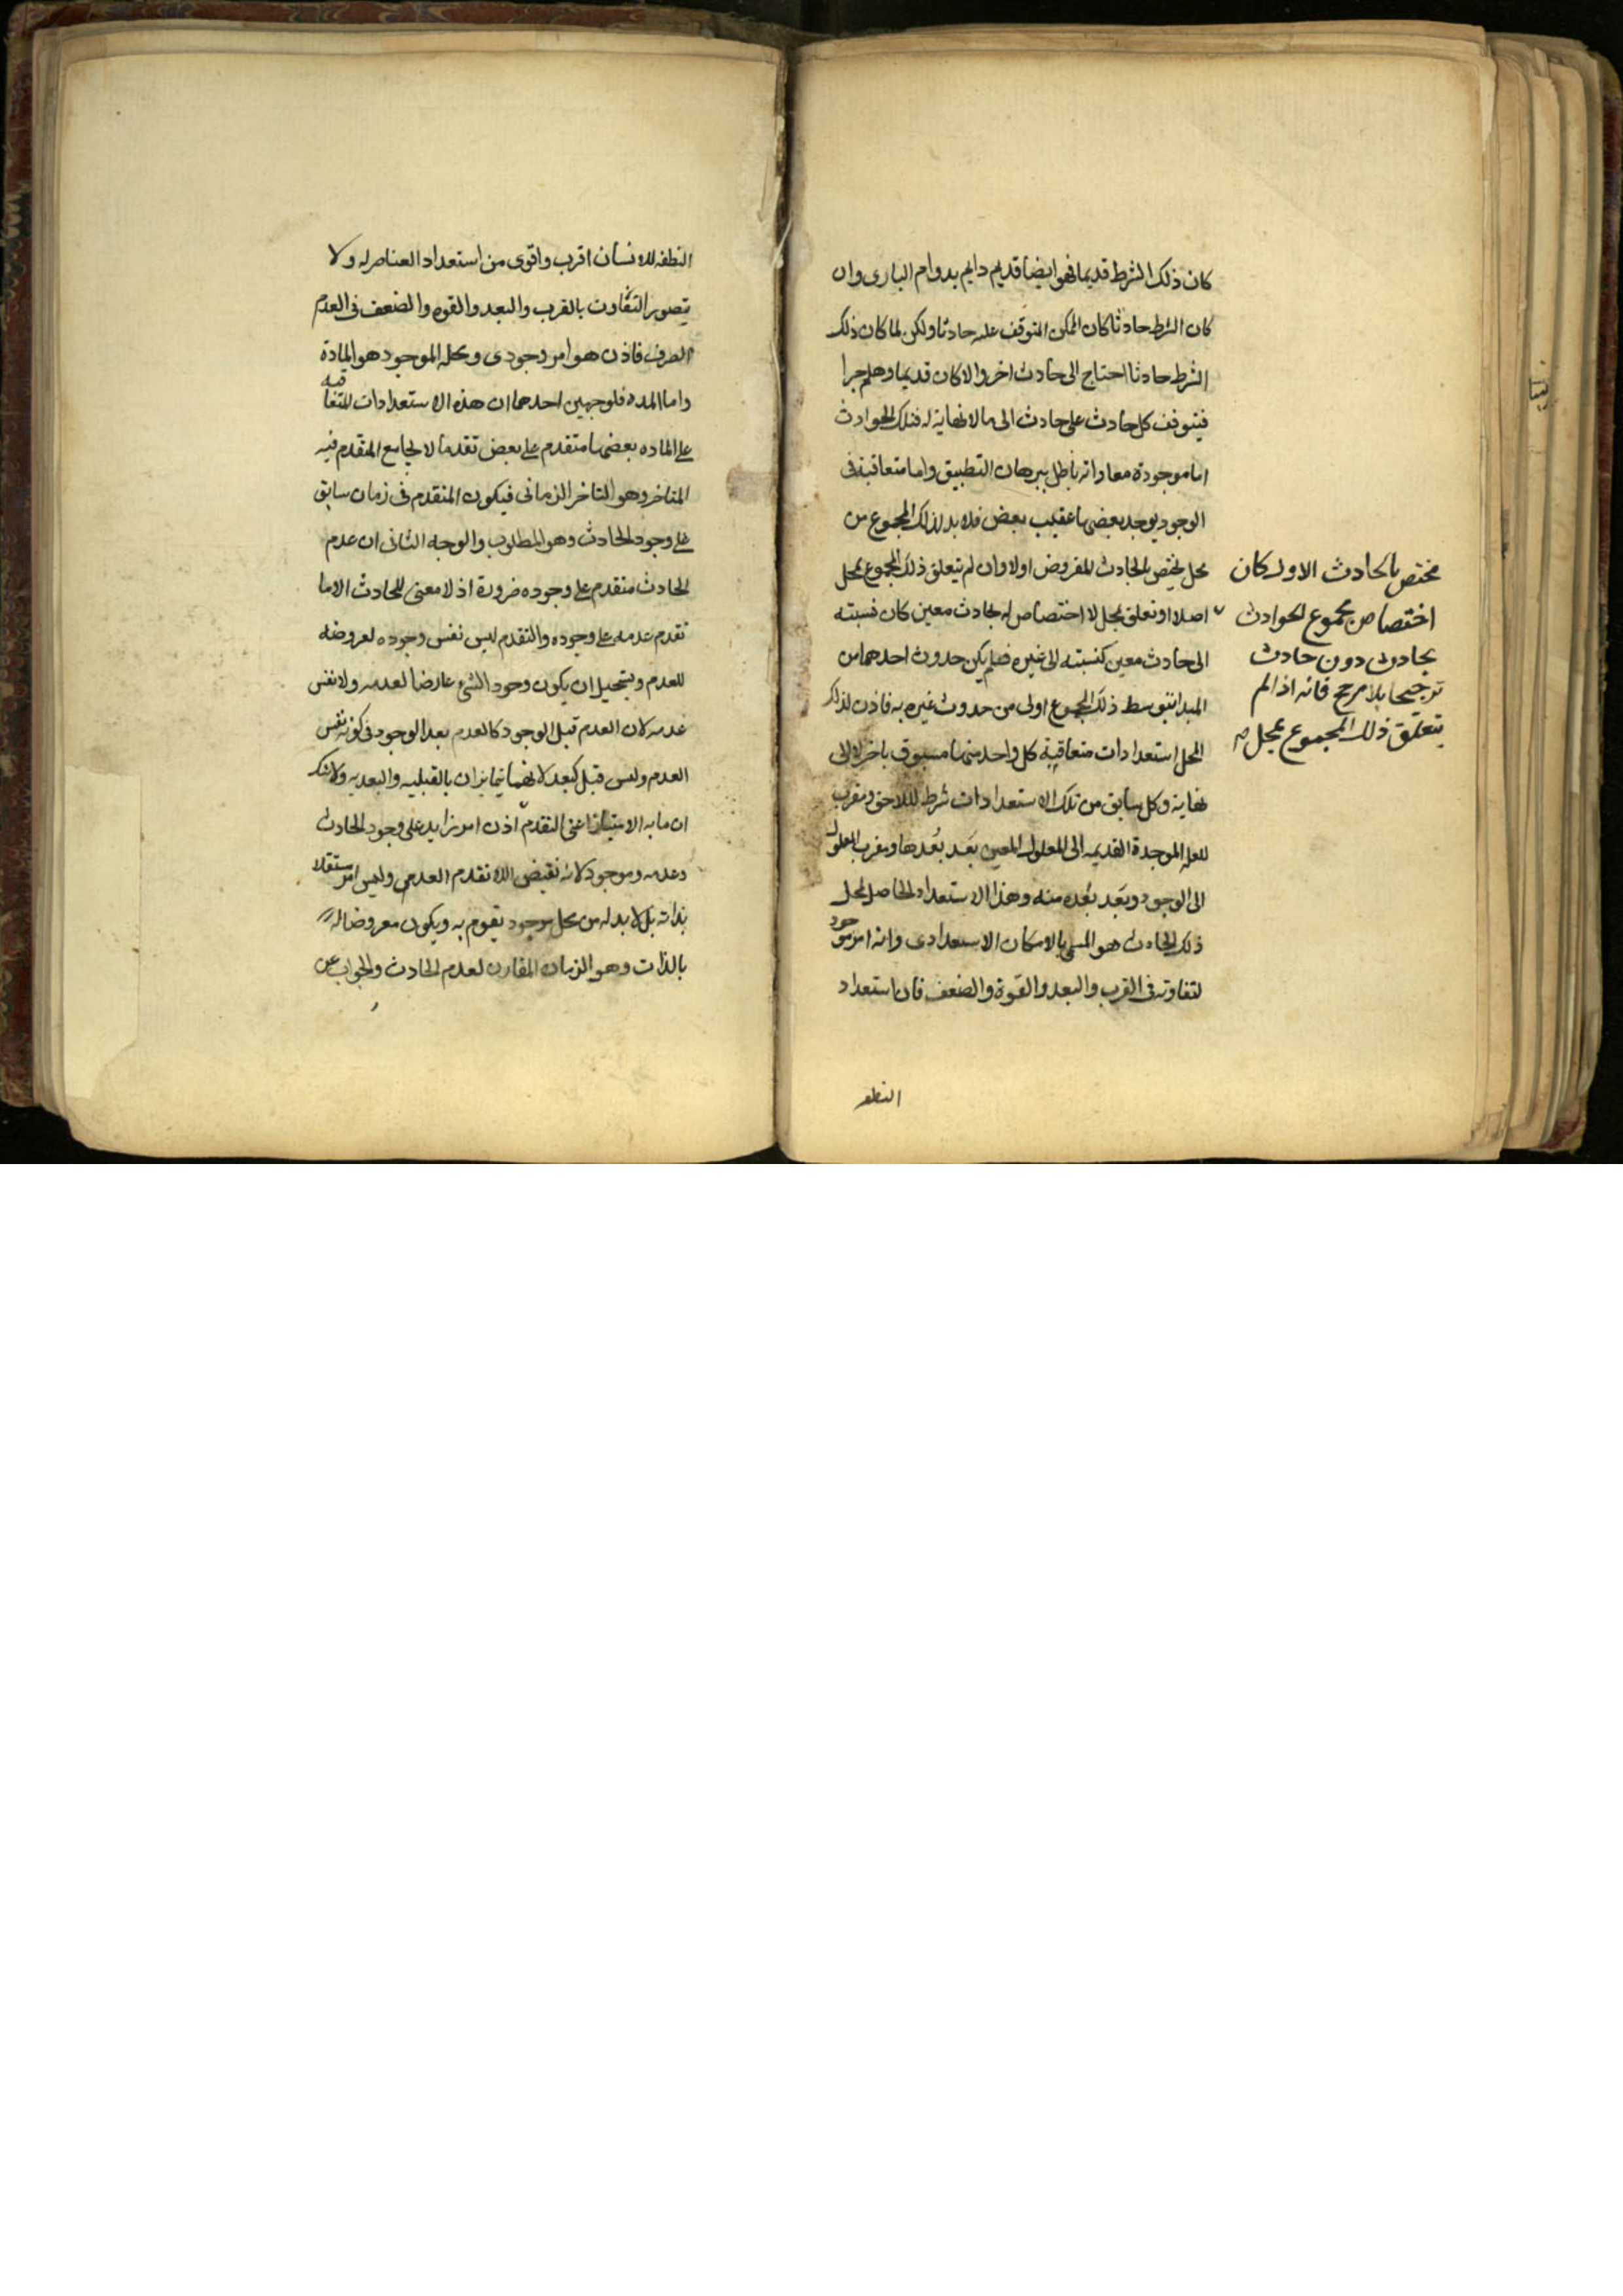 كان ذلك الشرط قديما فهو ايضا قديم دايم بدوام البارى وان
كان الشرط حادثا كان الممكن المتوقف عليه حادثا ولكن لما كان ذلك
الشرط حادثا احتاج الى حادث اخر والا كان قديما وهلم جرا
فيتوقف كل حادث على حادث الى ما لا نهاية له فتلك الحوادث
اما موجودة معا وانه باطل ببرهان التطبيق واما متعاقبة فى
الوجود يوجد بعضها عقيب بعض فلا بد لذلك المجموع من
محل يختص الحادث المفروض اولا وان لم يتعلق ذلك المجموع بمحل
اصلا او تعلق بمحل لا اختصاص له بحادث معين كان نسبته
الى حادث معين كنسبته الى غيره فلم يكن حدوث احدهما من
المبدا بتوسط ذلك المجموع اولى من حدوث غيره به فاذن لذلك
المحل استعدادات متعاقبة كل واحد منها مسبوق باخر لا الى
نهاية وكل سابق من تلك الاستعدادات شرط للاحق ومقرب
للعلة الموجدة القديمه الى المعلول المعين بعد بعدها ومقرب المعلول
الى الوجود وبعد بعده منه وهذا الاستعداد الحاصل لمحل
ذلك الحادث هو المسمى بالامكان الاستعدادى وانه امر موجود
لتفاوته فى القرب والبعد والقوة والضعف فان استعداد
النطفه
مختص بالحادث الاول كان
اختصاص مجموع الحوادث
بحادث دون حادث
ترجيحا بلا مرجح فانه اذا لم
يتعلق ذلك المجموع بمحل صح
النطفه للانسان اقرب واقوى من استعداد العناصر له ولا
يتصور التفاوت بالقرب والبعد والقوه والضعف فى العدم
الصرف فاذن هو امر وجودى ومحله الموجود هو المادة
واما المده فلوجهين احدهما ان هذه الاستعدادات المتعاقبه
على الماده بعضها متقدم على بعض تقدما لا يجامع المتقدم فيه
المتاخر وهو التاخر الزمانى فيكون المتقدم فى زمان سابق
على وجود الحادث وهو المطلوب والوجه الثانى ان عدم
الحادث متقدم على وجوده ضرورة اذ لا معنى للحادث الا ما
تقدم عدمه على وجوده والتقدم ليس نفس وجوده لعروضه
للعدم ويستحيل ان يكون وجود الشىء عارضا لعدمه ولا نفس
عدمه لان العدم قبل الوجود كالعدم بعد الوجود فى كونه نفس
العدم وليس قبل كبعد لانهما يتمايزان بالقبليه والبعديه ولا شك
ان ما به الامتياز اعنى التقدم اذن امر زايد على وجود الحادث
وعدمه وموجود لانه نقيض اللا تقدم العدمى وليس امر مستقلا
بذاته بل لا بد له من محل موجود يقوم به ويكون معروضا له
بالذات وهو الزمان المقارن لعدم الحادث والجواب عن